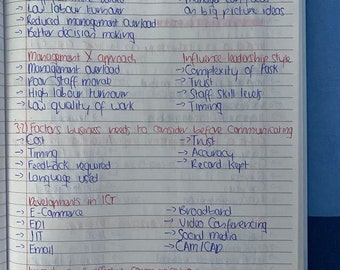 → Low labour turnover
on big picture ideas
→ Reduced management overload
→ Better decision making
Management X approach
→ Management overload
→ Poor Staff morale
→ High labour turnover
→ Low quality of work
Influence leadership style
→ Complexity of task
→ Trust
→ Staff skill levels
→ Timing
32) Factors business needs to consider before communicating
→ Cost
→ Timing
→ Feedback required
→ Language used
→ Trust
→ Accuracy
→ Record kept
Developments in ICT
→ E-Commerce
→ EDI
→ JIT
→ Email
→ Broadband
→ Video Conferencing
→ Social media
→ CAM/CAD